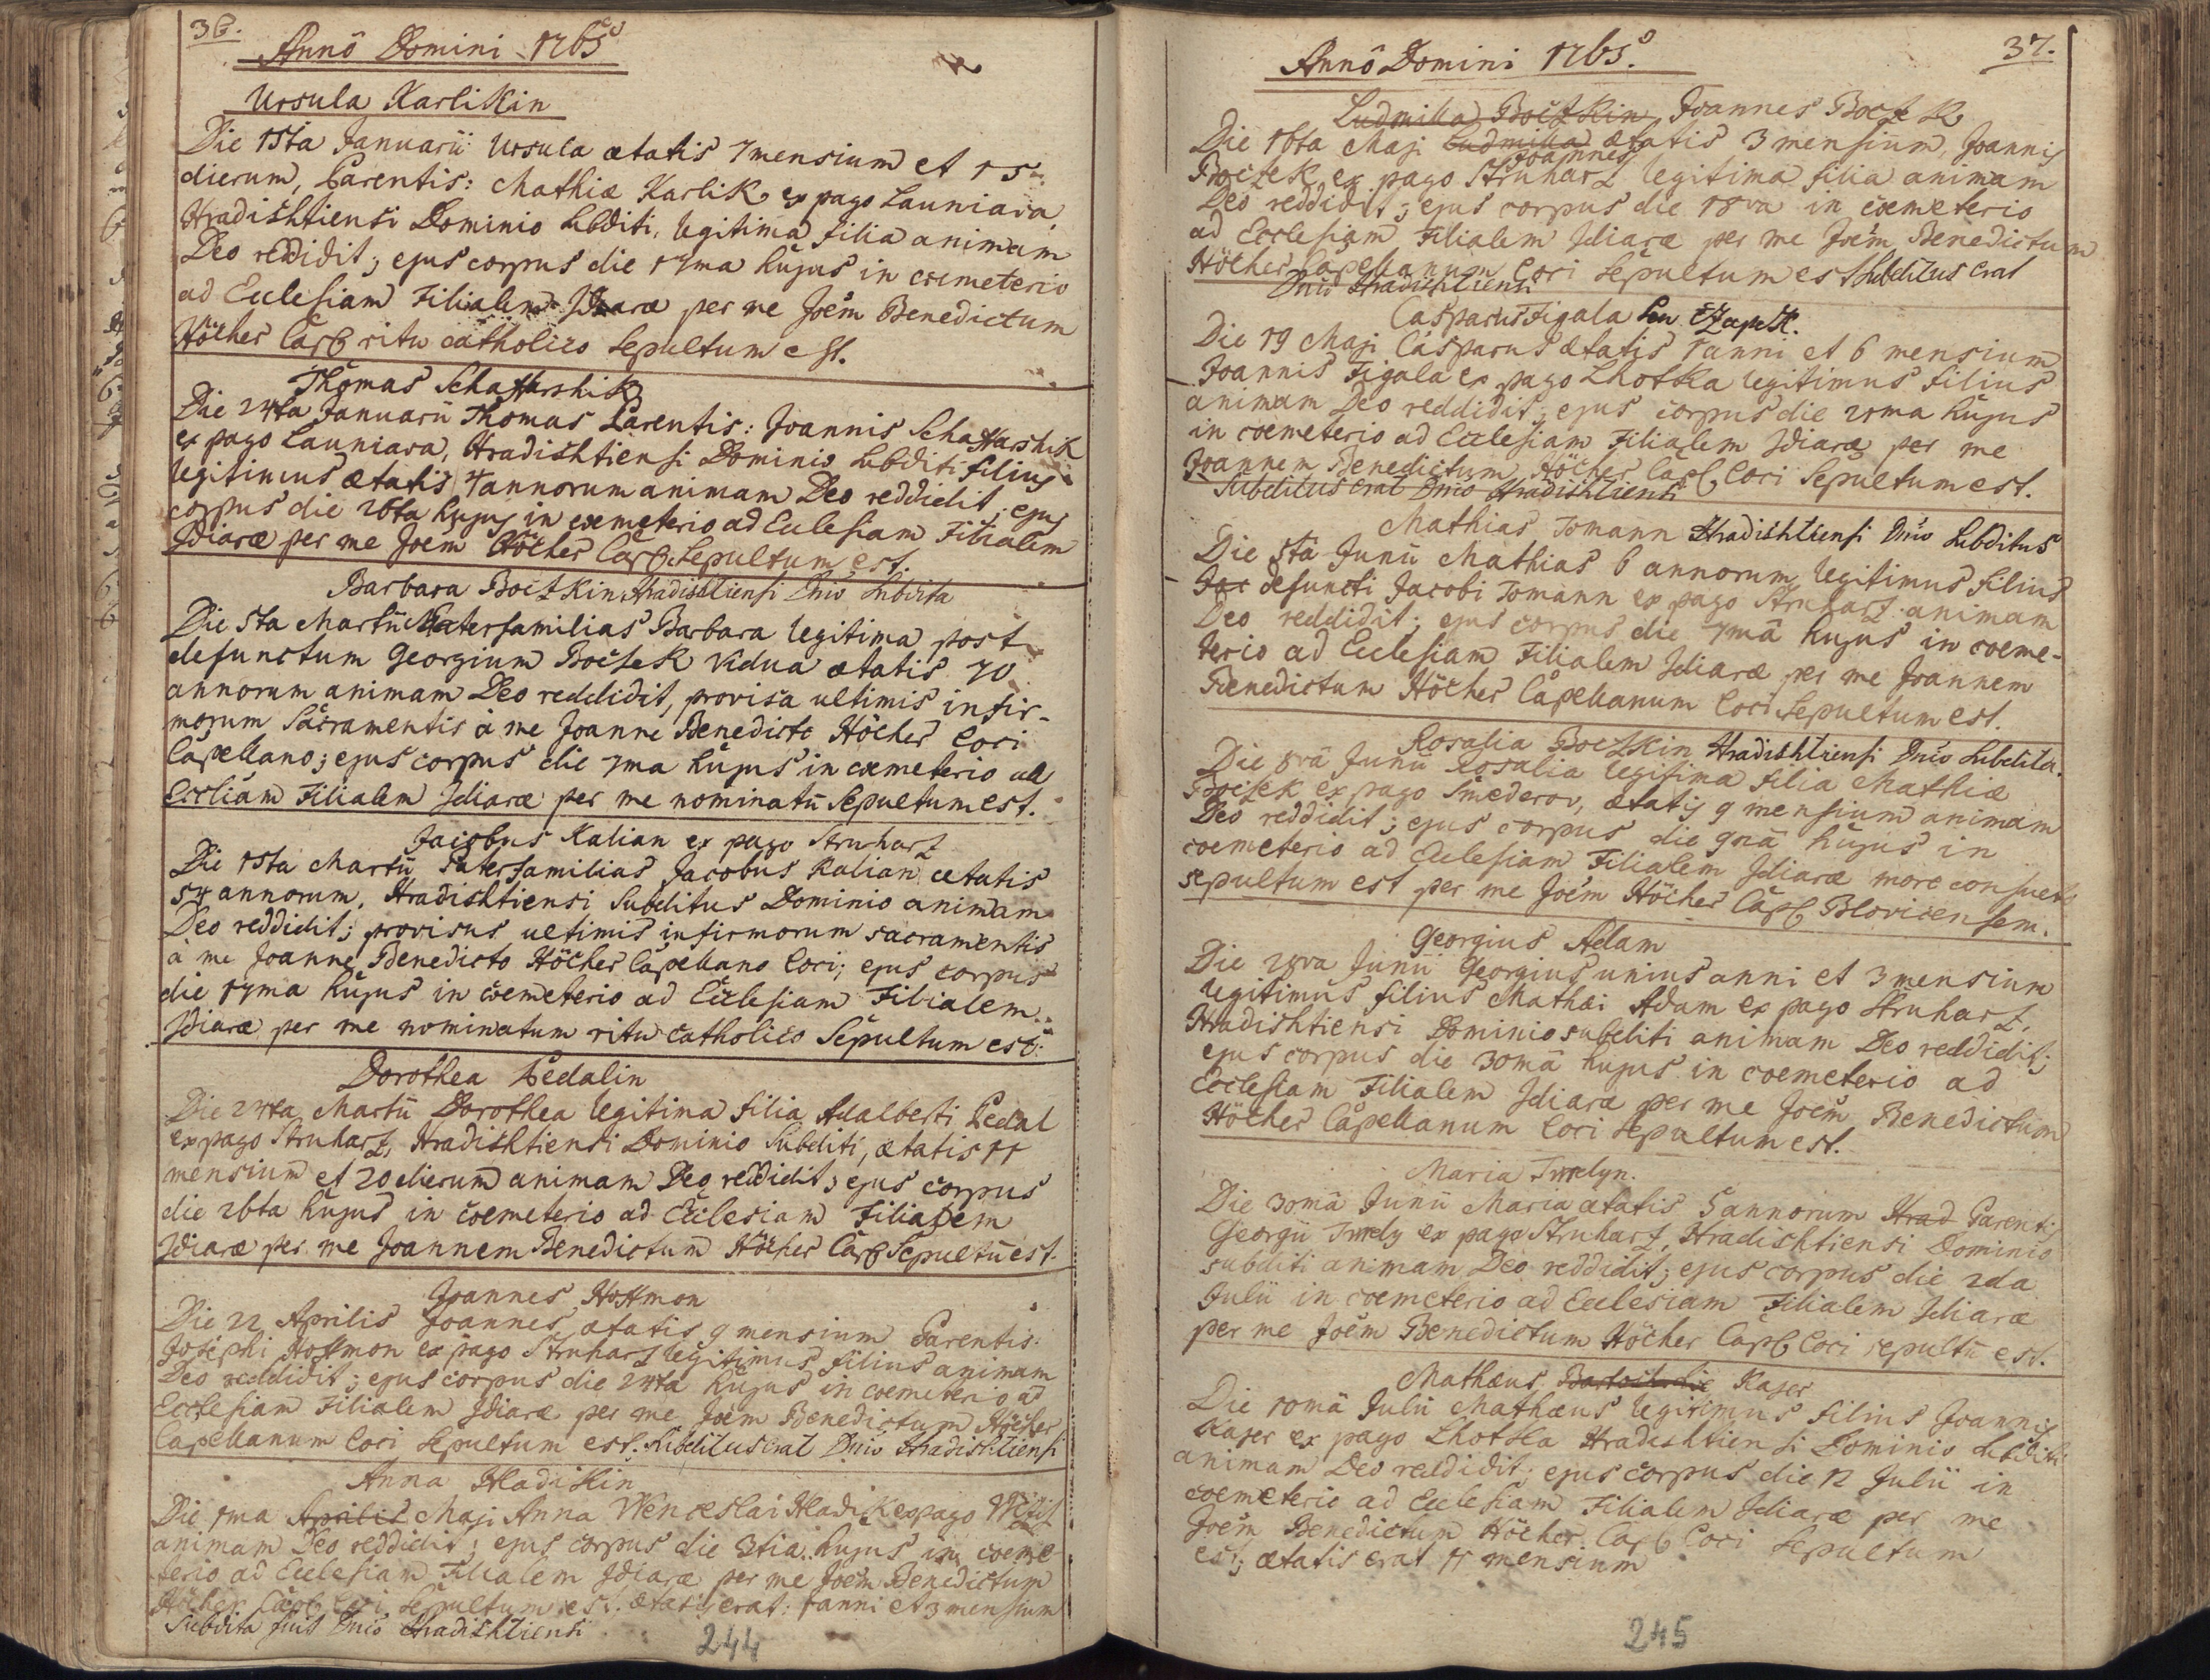 36.
Annô Domini 1765⁰
Ursula Karlikin
Die 15ta Januarii Ursula ætatis 7 mensium et 15
dierum, Parentis: Mathiæ Karlik ex pago Launiava
Hradishtiensi Dominio subditi, legitima filia animam
Deo reddidit; ejus corpus die 17ma hujus in cœmeterio
ad Ecclesiam Filialem Jdiaræ per me Joem Benedictum
Höcher Capl ritu catholico sepultum est.
Thomas Schaffarshik
Die 24ta Januarii Thomas Parentis: Joannis Schaffarshik
ex pago Launiava, Hradishtiensi Dominio subditi filius
legitimus ætatis 4 annorum animam Deo reddidit, ejus
corpus die 26ta hujus in cœmeterio ad Ecclesiam Filialem
Jdiaræ per me Joem Höcher Capl. sepultum est.
Barbara Boczkin Hradishtiensi Dnio subdita
Die 5ta Martii Materfamilias Barbara legitima post
defunctum Georgium Boczek vidua ætatis 70
annorum animam Deo reddidit, provisa ultimis infir-
morum Sacramentis à me Joanne Benedicto Höcher Loci
Capellano; ejus corpus die 7ma hujus in cœmeterio ad
Eccliam Filialem Jdiaræ per me nominatu sepultum est.
Jacobus Kalian ex pago Struharz
Die 15ta Martii Paterfamilias Jacobus Kalian ætatis
54 annorum, Hradishtiensi Subditus Dominio animam
Deo reddidit; provisus ultimis infirmorum sacramentis
à me Joanne Benedicto Höcher Capellano Loci; ejus corpus
die 17ma hujus in cœmeterio ad Ecclesiam Filialem
Jdiaræ per me nominatum ritu catholico sepultum est.
Dorothea Pedalin
Die 24ta Martii Dorothea legitima filia Adalberti Pedal
ex pago Struharz, Hradishtiensi Dominio Subditi, ætatis 11
mensium et 20 dierum animam Deo reddidit; ejus corpus
die 26ta hujus in cœmeterio ad Ecclesiam Filialem
Jdiaræ per me Joannem Benedictum Höcher Capl sepultu est.
Joannes Hoffmon
Die 22 Aprilis Joannes ætatis 9 mensium Parentis:
Josephi Hoffmon ex pago Struharz legitimus filius animam
Deo reddidit; ejus corpus die 24ta hujus in cœmeterio ad
Ecclesiam Filialem Jdiaræ per me Joem Benedictum Höcher
Capellanum Loci sepultum est. Subditus erat Dnio Hradishtiensi
Anna Hladikin
Die 1ma Aprilis Maji Anna Wenceslai Hladik ex pago
animam Deo reddidit; ejus corpus die 3tia hujus in cœme-
terio ad Ecclesiam Filialem Jdiaræ per me Joem Benedictum
Höcher Capl Loci sepultum est. ætatis erat: 1 anni et 3 mensium
Subdita fuit Dnio Hradishtiensi
244
Annô Domini 1765⁰.
37.
Ludmilla Boczkin Joannes Boczek
Die 16ta Maji Ludmilla ætatis 3 mensium, Joannis
Joannes
Boczek ex pago Struharz legitima filia animam
Deo reddidit; ejus corpus die 18va in cœmeterio
ad Ecclesiam Filialem Jdiaræ per me Joem Benedictum
Höcher Capellanum Loci sepultum est Subditus erat
Dnio Hradishtiensi
Casparus Figala seu
Die 19 Maji Casparus ætatis 1 anni et 6 mensium
Joannis Figala ex pago Lhotka legitimus filius
animam Deo reddidit; ejus corpus die 21ma hujus
in cœmeterio ad Ecclesiam Filialem Jdiaræ per me
Joannem Benedictum Höcher Capl Loci sepultum est.
Subditus erat Dnio Hradishtiensi
Mathias Tomann Hradishtiensi Dnio subditus
Die 5ta Junii Mathias 6 annorum legitimus filius
Jac defuncti Jacobi Tomann ex pago Struharz animam
Deo reddidit; ejus corpus die 7mâ hujus in cœme-
terio ad Ecclesiam Filialem Jdiaræ per me Joannem
Benedictum Höcher Capellanum Loci sepultum est.
Rosalia Boczkin Hradishtiensi Dnio subdita.
Die 8vâ Junii Rosalia legitima filia Mathiæ
Boczek ex pago Smederov, ætatis 9 mensium animam
Deo reddidit; ejus corpus die 9nâ hujus in
cœmeterio ad Ecclesiam Filialem Jdiaræ more consueto
sepultum est per me Joem Höcher Capl Blovicensem.
Georgius Adam
Die 28va Junii Georgius unius anni et 3 mensium
legitimus filius Mathæi Adam ex pago Struharz,
Hradishtiensi Dominio subditi animam Deo reddidit;
ejus corpus die 30mâ hujus in cœmeterio ad
Ecclesiam Filialem Jdiaræ per me Joem Benedictum
Höcher Capellanum Loci sepultum est.
Maria
Die 30mâ Junii Maria ætatis 5 annorum Hrad Parentis
Georgii ex pago Struharz, Hradishtiensi Dominio
subditi animam Deo reddidit; ejus corpus die 2da
Julii in cœmeterio ad Ecclesiam Filialem Jdiaræ
per me Joem Benedictum Höcher Capl Loci sepultu est.
Mathæus Kajer
Die 10mâ Julii Mathæus legitimus filius Joannis
Kajer ex pago Lhotka Hradishtiensi Dominio subditi
animam Deo reddidit; ejus corpus die 12 Julii in
cœmeterio ad Ecclesiam Filialem Jdiaræ per me
Joem Benedictum Höcher Capl Loci sepultum
est; ætatis erat 11 mensium
245